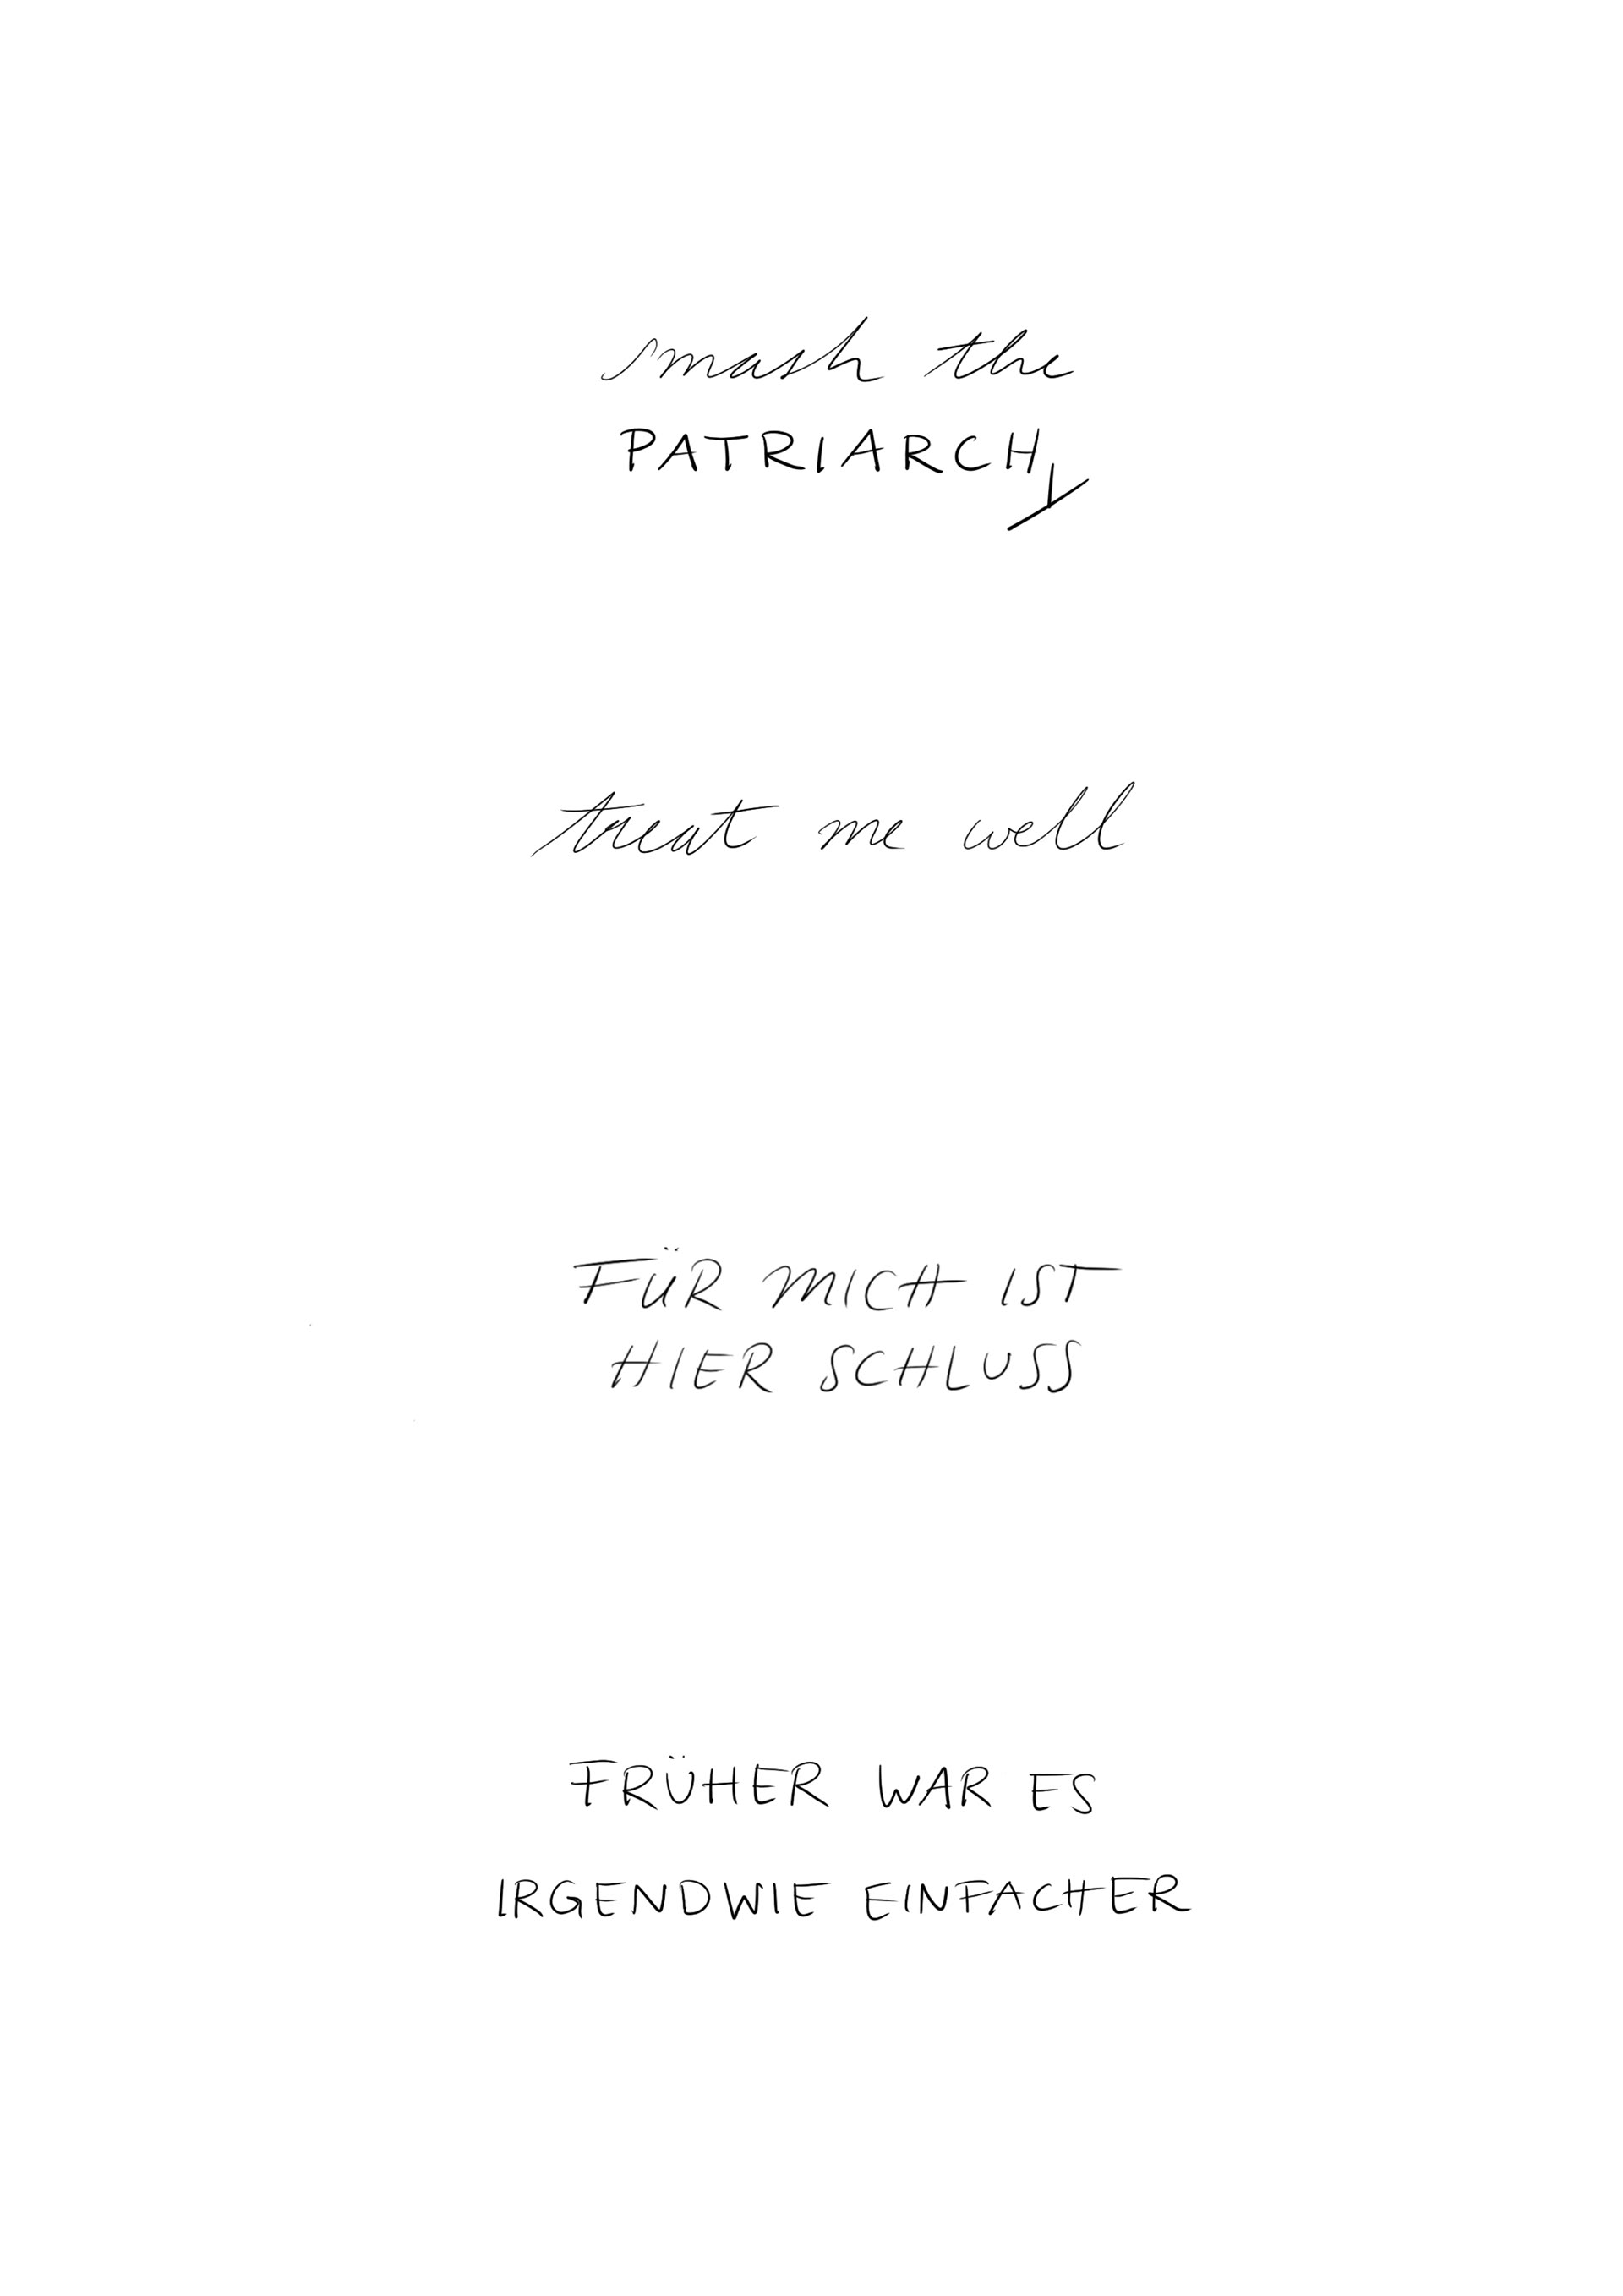 smash the
PATRIARCHY
treat me well
FÜR MICH IST
HIER SCHLUSS
FRÜHER WAR ES
IRGENDWIE EINFACHER